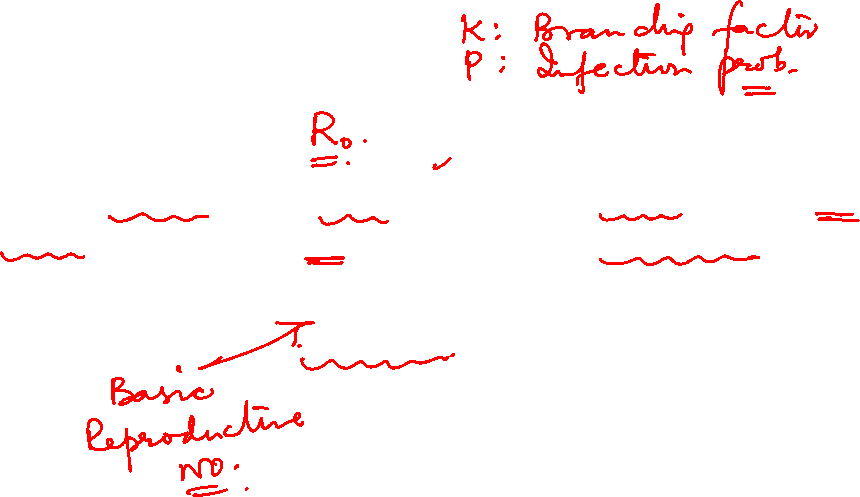 K: Branching factor
P: Infection prob.
R₀.
Basic
Reproductive
NO.